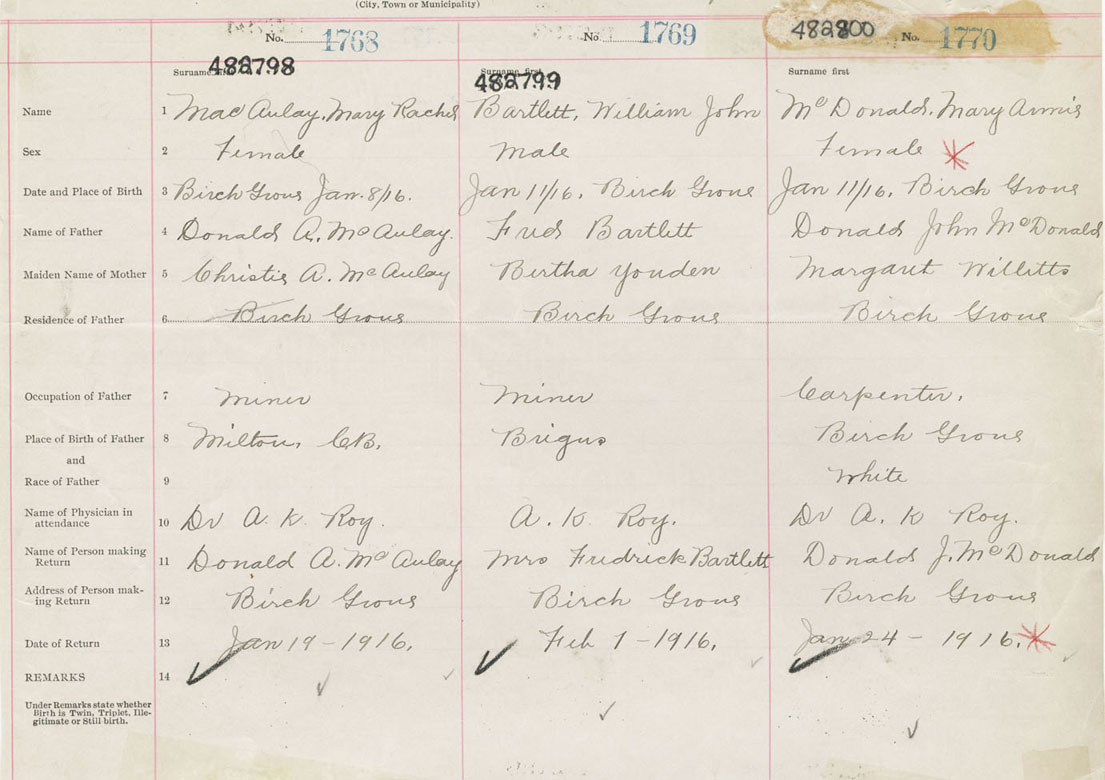 (City, Town or Municipality)
No. 1768 No 1769 482800 No. 1770
482798 482799
Surname first Surname first Surname first
Name 1 MacAulay, Mary Rachel Bartlett, William John McDonald, Mary Annie
Sex 2 Female Male Female
Date and Place of Birth 3 Birch Grove Jan. 8/16. Jan 11/16. Birch Grove Jan 11/16. Birch Grove
Name of Father 4 Donald A. McAulay. Fred Bartlett Donald John McDonald
Maiden Name of Mother 5 Christie A. McAulay Bertha Youden Margaret Willitts
Residence of Father 6 Birch Grove Birch Grove Birch Grove
Occupation of Father 7 Miner Miner Carpenter.
Place of Birth of Father 8 Milton, C.B. Brigus Birch Grove
and
Race of Father 9 White
Name of Physician in
attendance 10 Dr A. K. Roy. A. K. Roy. Dr A. K Roy.
Name of Person making
Return 11 Donald A. McAulay Mrs Fredrick Bartlett Donald J. McDonald
Address of Person mak-
ing Return 12 Birch Grove Birch Grove Birch Grove
Date of Return 13 Jan 19 - 1916. Feb 1 - 1916. Jan 24 - 1916.
REMARKS 14
Under Remarks state whether
Birth is Twin, Triplet, Ille-
gitimate or Still birth.